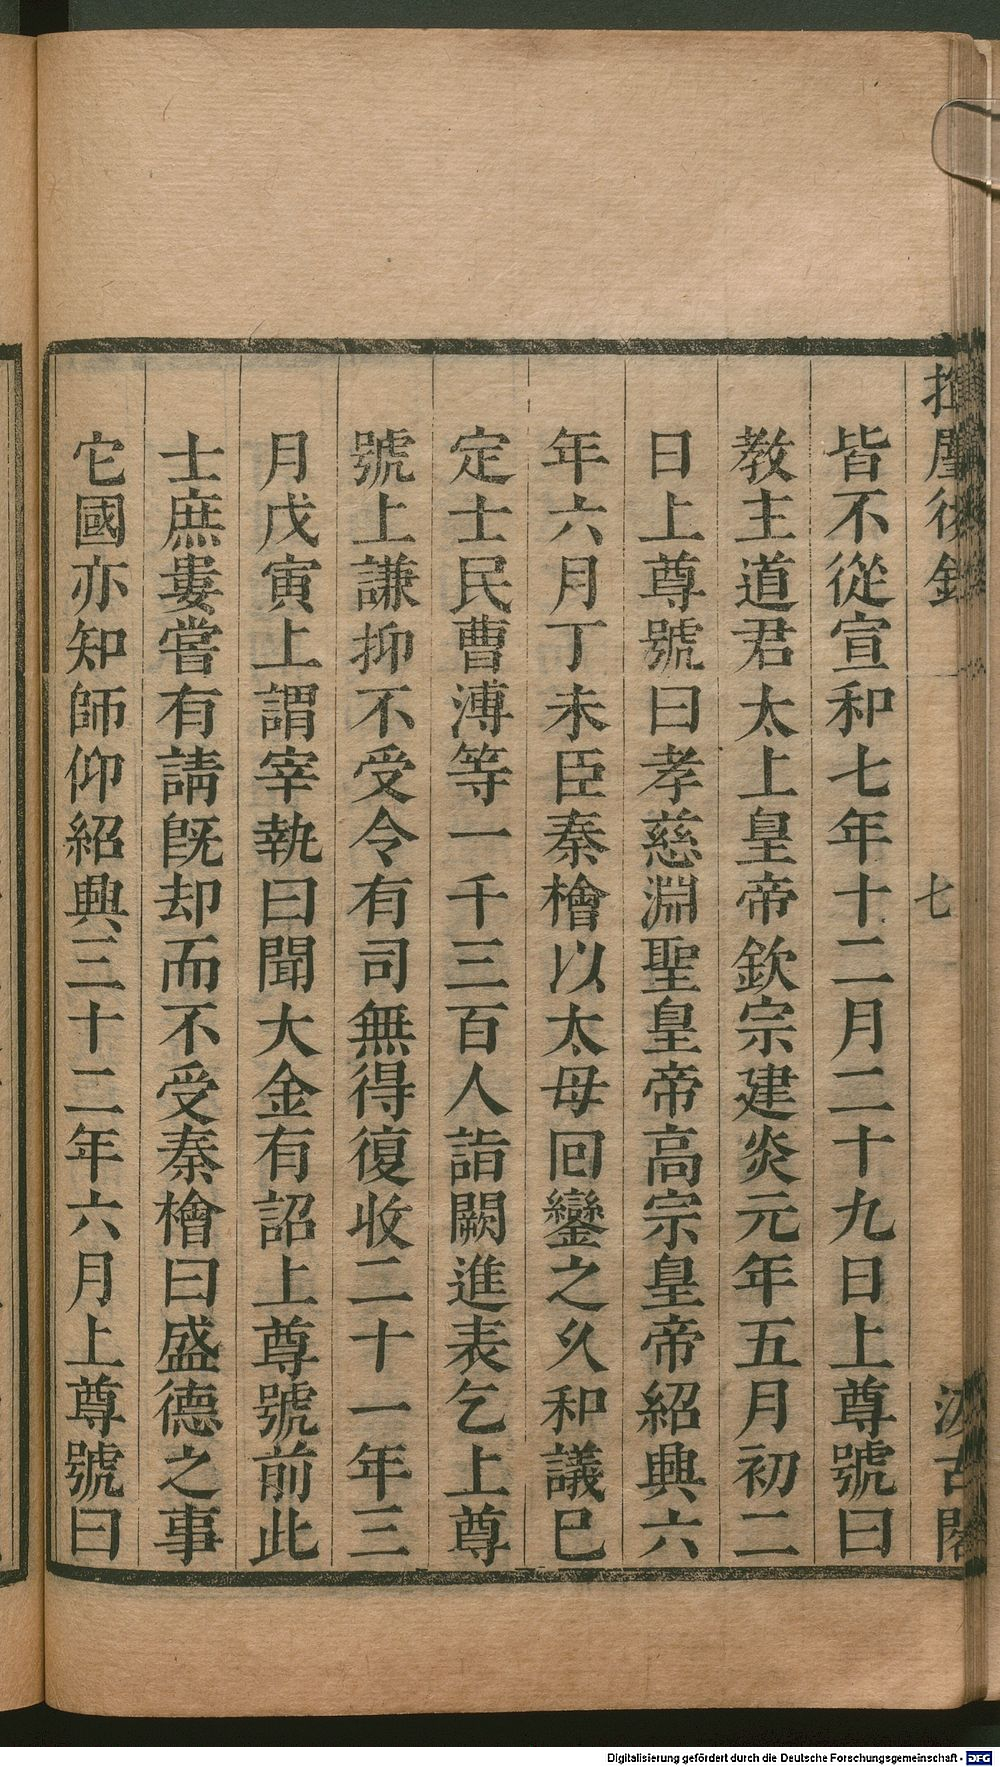 揮麈後錄 七 汲古閣
皆不從宣和七年十二月二十九日上尊號曰
教主道君太上皇帝欽宗建炎元年五月初二
日上尊號曰孝慈淵聖皇帝高宗皇帝紹興六
年六月丁未臣秦檜以太母回鑾之久和議已
定士民曹溥等一千三百人詣闕進表乞上尊
號上謙抑不受令有司無得復收二十一年三
月戊寅上謂宰執曰聞大金有詔上尊號前此
士庶婁嘗有請既却而不受秦檜曰盛德之事
它國亦知師仰紹興三十二年六月上尊號曰
Digitalisierung gefördert durch die Deutsche Forschungsgemeinschaft - DFG